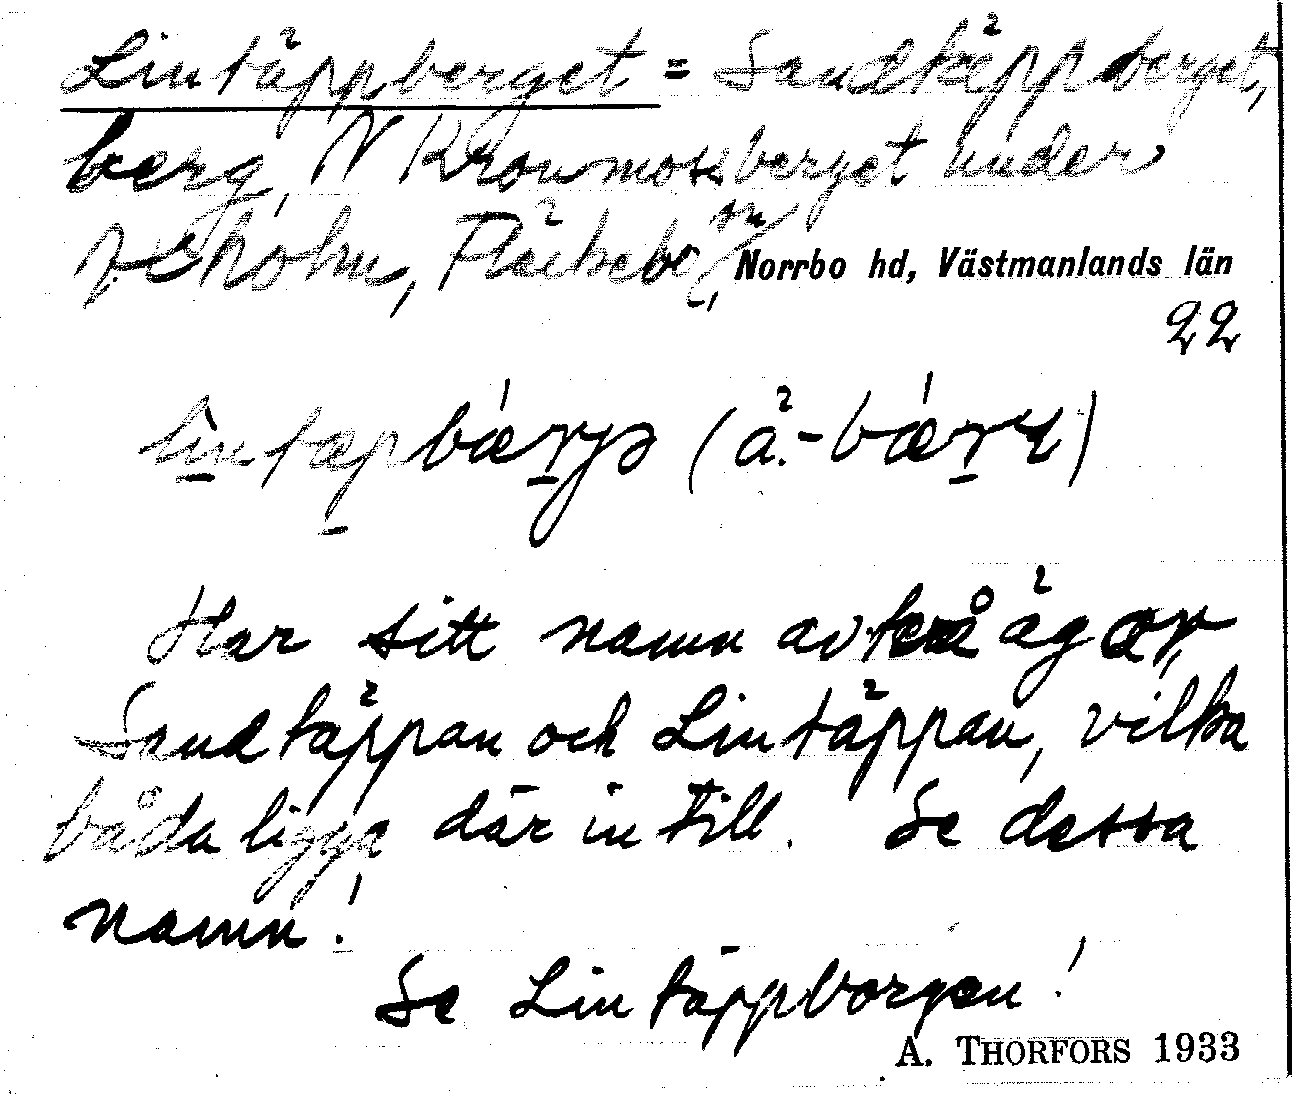 Lintäppberget = Sandtäppberget,
berg, N Kronmossberget under
Fläckebo sn, Norrbo hd, Västmanlands län
22
lintæpbærjə (å.-bærɪ)
Har sitt namn av två ägor,
Sandtäppan och Lintäppan, vilka
båda ligga där in till. Se dessa
namn!
Se Lintäppborgen!
A. THORFORS 1933